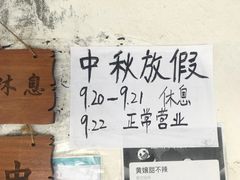 中秋放假
9.20－9.21 休息
9.22 正常营业
休息
黄嬢甜不辣